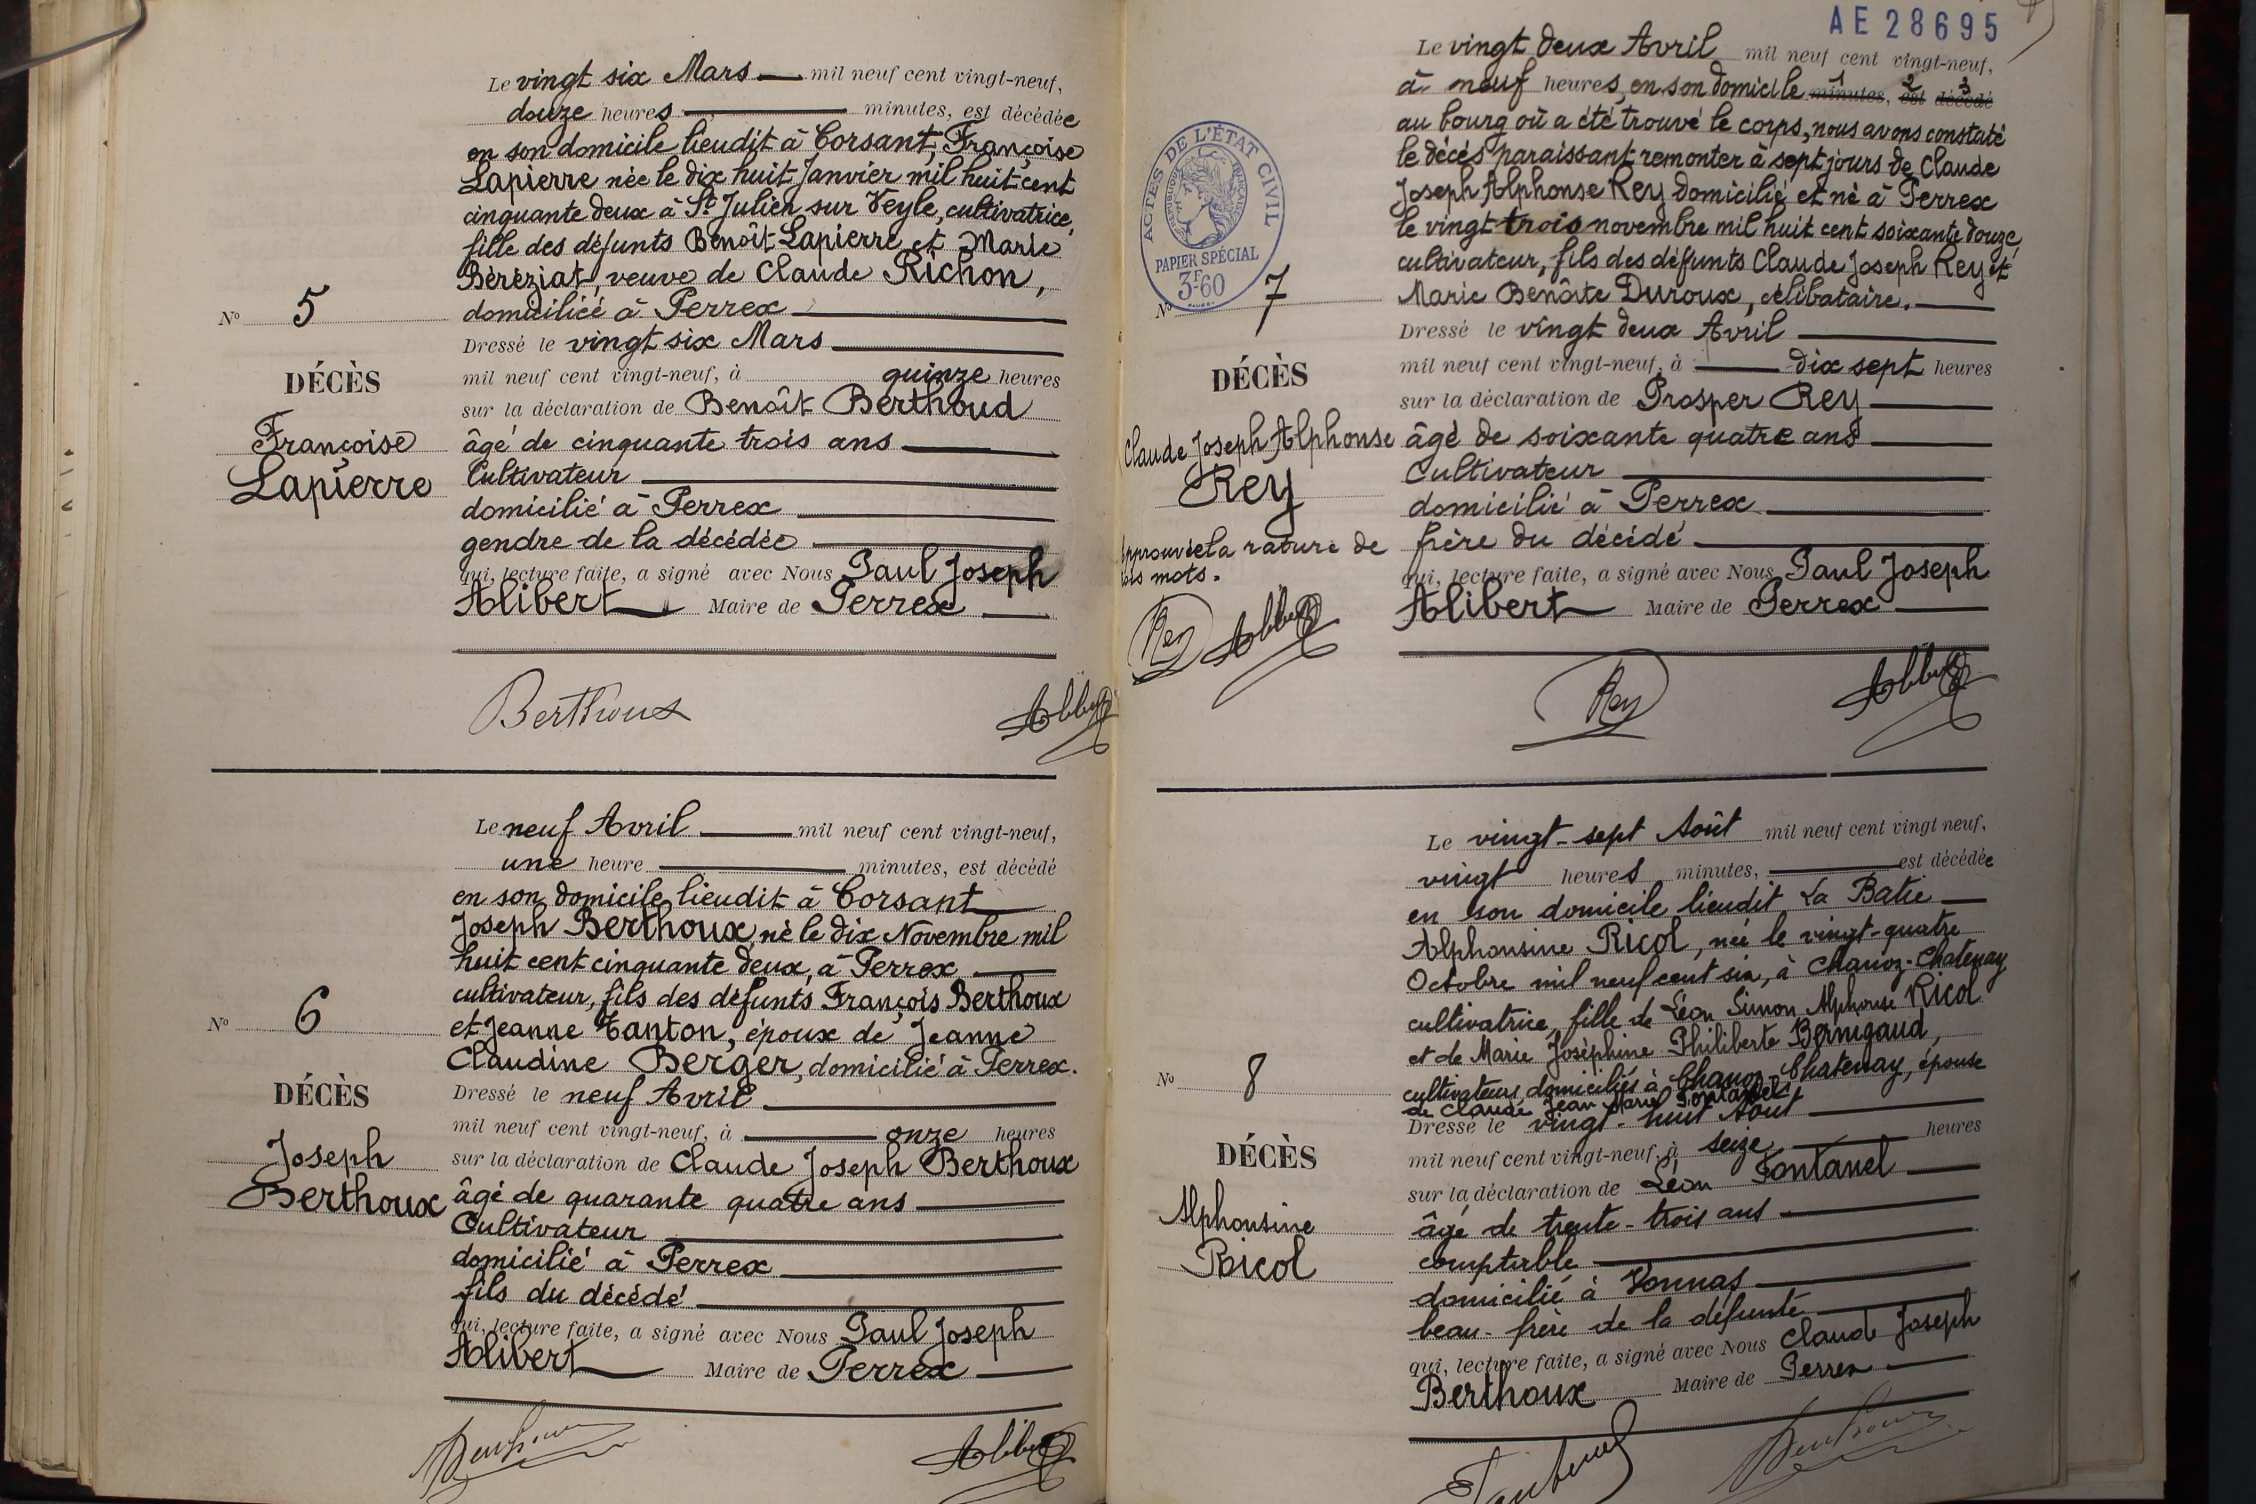 Le vingt six Mars mil neuf cent vingt-neuf,
douze heures minutes, est décédée
en son domicile lieudit à Corsant, Françoise
Lapierre née le dix huit Janvier mil huit cent
cinquante deux à St Julien sur Veyle, cultivatrice,
fille des défunts Benoît Lapierre et Marie
Béréziat, veuve de Claude Richon,
domiciliée à Perrex
Dressé le vingt six Mars
mil neuf cent vingt-neuf, à quinze heures
sur la déclaration de Benoît Berthoud
âgé de cinquante trois ans
Cultivateur
domicilié à Perrex
gendre de la décédée
qui, lecture faite, a signé avec Nous Paul Joseph
Alibert Maire de Perrex
No 5
DÉCÈS
Françoise
Lapierre
Le neuf Avril mil neuf cent vingt-neuf,
une heure minutes, est décédé
en son domicile lieudit à Corsant
Joseph Berthoux, né le dix Novembre mil
huit cent cinquante deux, à Perrex
cultivateur, fils des défunts François Berthoux
et Jeanne Tanton, époux de Jeanne
Claudine Berger, domicilié à Perrex.
Dressé le neuf Avril
mil neuf cent vingt-neuf, à onze heures
sur la déclaration de Claude Joseph Berthoux
âgé de quarante quatre ans
Cultivateur
domicilié à Perrex
fils du décédé
qui, lecture faite, a signé avec Nous Paul Joseph
Alibert Maire de Perrex
No 6
DÉCÈS
Joseph
Berthoux
AE 28695
ACTES DE L'ÉTAT CIVIL
PAPIER SPÉCIAL
3F60
Le vingt deux Avril mil neuf cent vingt-neuf,
à neuf heures, en son domicile 1 minutes, 2 est 3 décédé
au bourg où a été trouvé le corps, nous avons constaté
le décès paraissant remonter à sept jours de Claude
Joseph Alphonse Rey domicilié et né à Perrex
le vingt trois novembre mil huit cent soixante douze,
cultivateur, fils des défunts Claude Joseph Rey et
Marie Benoîte Duroux, célibataire.
Dressé le vingt deux Avril
mil neuf cent vingt-neuf, à dix sept heures
sur la déclaration de Prosper Rey
âgé de soixante quatre ans
Cultivateur
domicilié à Perrex
frère du décédé
qui, lecture faite, a signé avec Nous Paul Joseph
Alibert Maire de Perrex
No 7
DÉCÈS
Claude Joseph Alphonse
Rey
la rature de
mots.
Rey
Rey
Le vingt-sept Août mil neuf cent vingt neuf,
vingt heures minutes, est décédée
en son domicile lieudit La Batie
Alphonsine Ricol, née le vingt-quatre
Octobre mil neuf cent six, à Chanoz-Chatenay
cultivatrice, fille de Léon Simon Alphonse Ricol
et de Marie Joséphine Philiberte Bernigaud,
cultivateurs domiciliés à Chanoz-Chatenay, épouse
de Claude Jean Marie Fontanel
Dressé le vingt-huit Août
mil neuf cent vingt-neuf, à seize heures
sur la déclaration de Léon Fontanel
âgé de trente-trois ans
comptable
domicilié à Vonnas
beau-frère de la défunte
qui, lecture faite, a signé avec Nous Claude Joseph
Berthoux Maire de Perrex
No 8
DÉCÈS
Alphonsine
Ricol